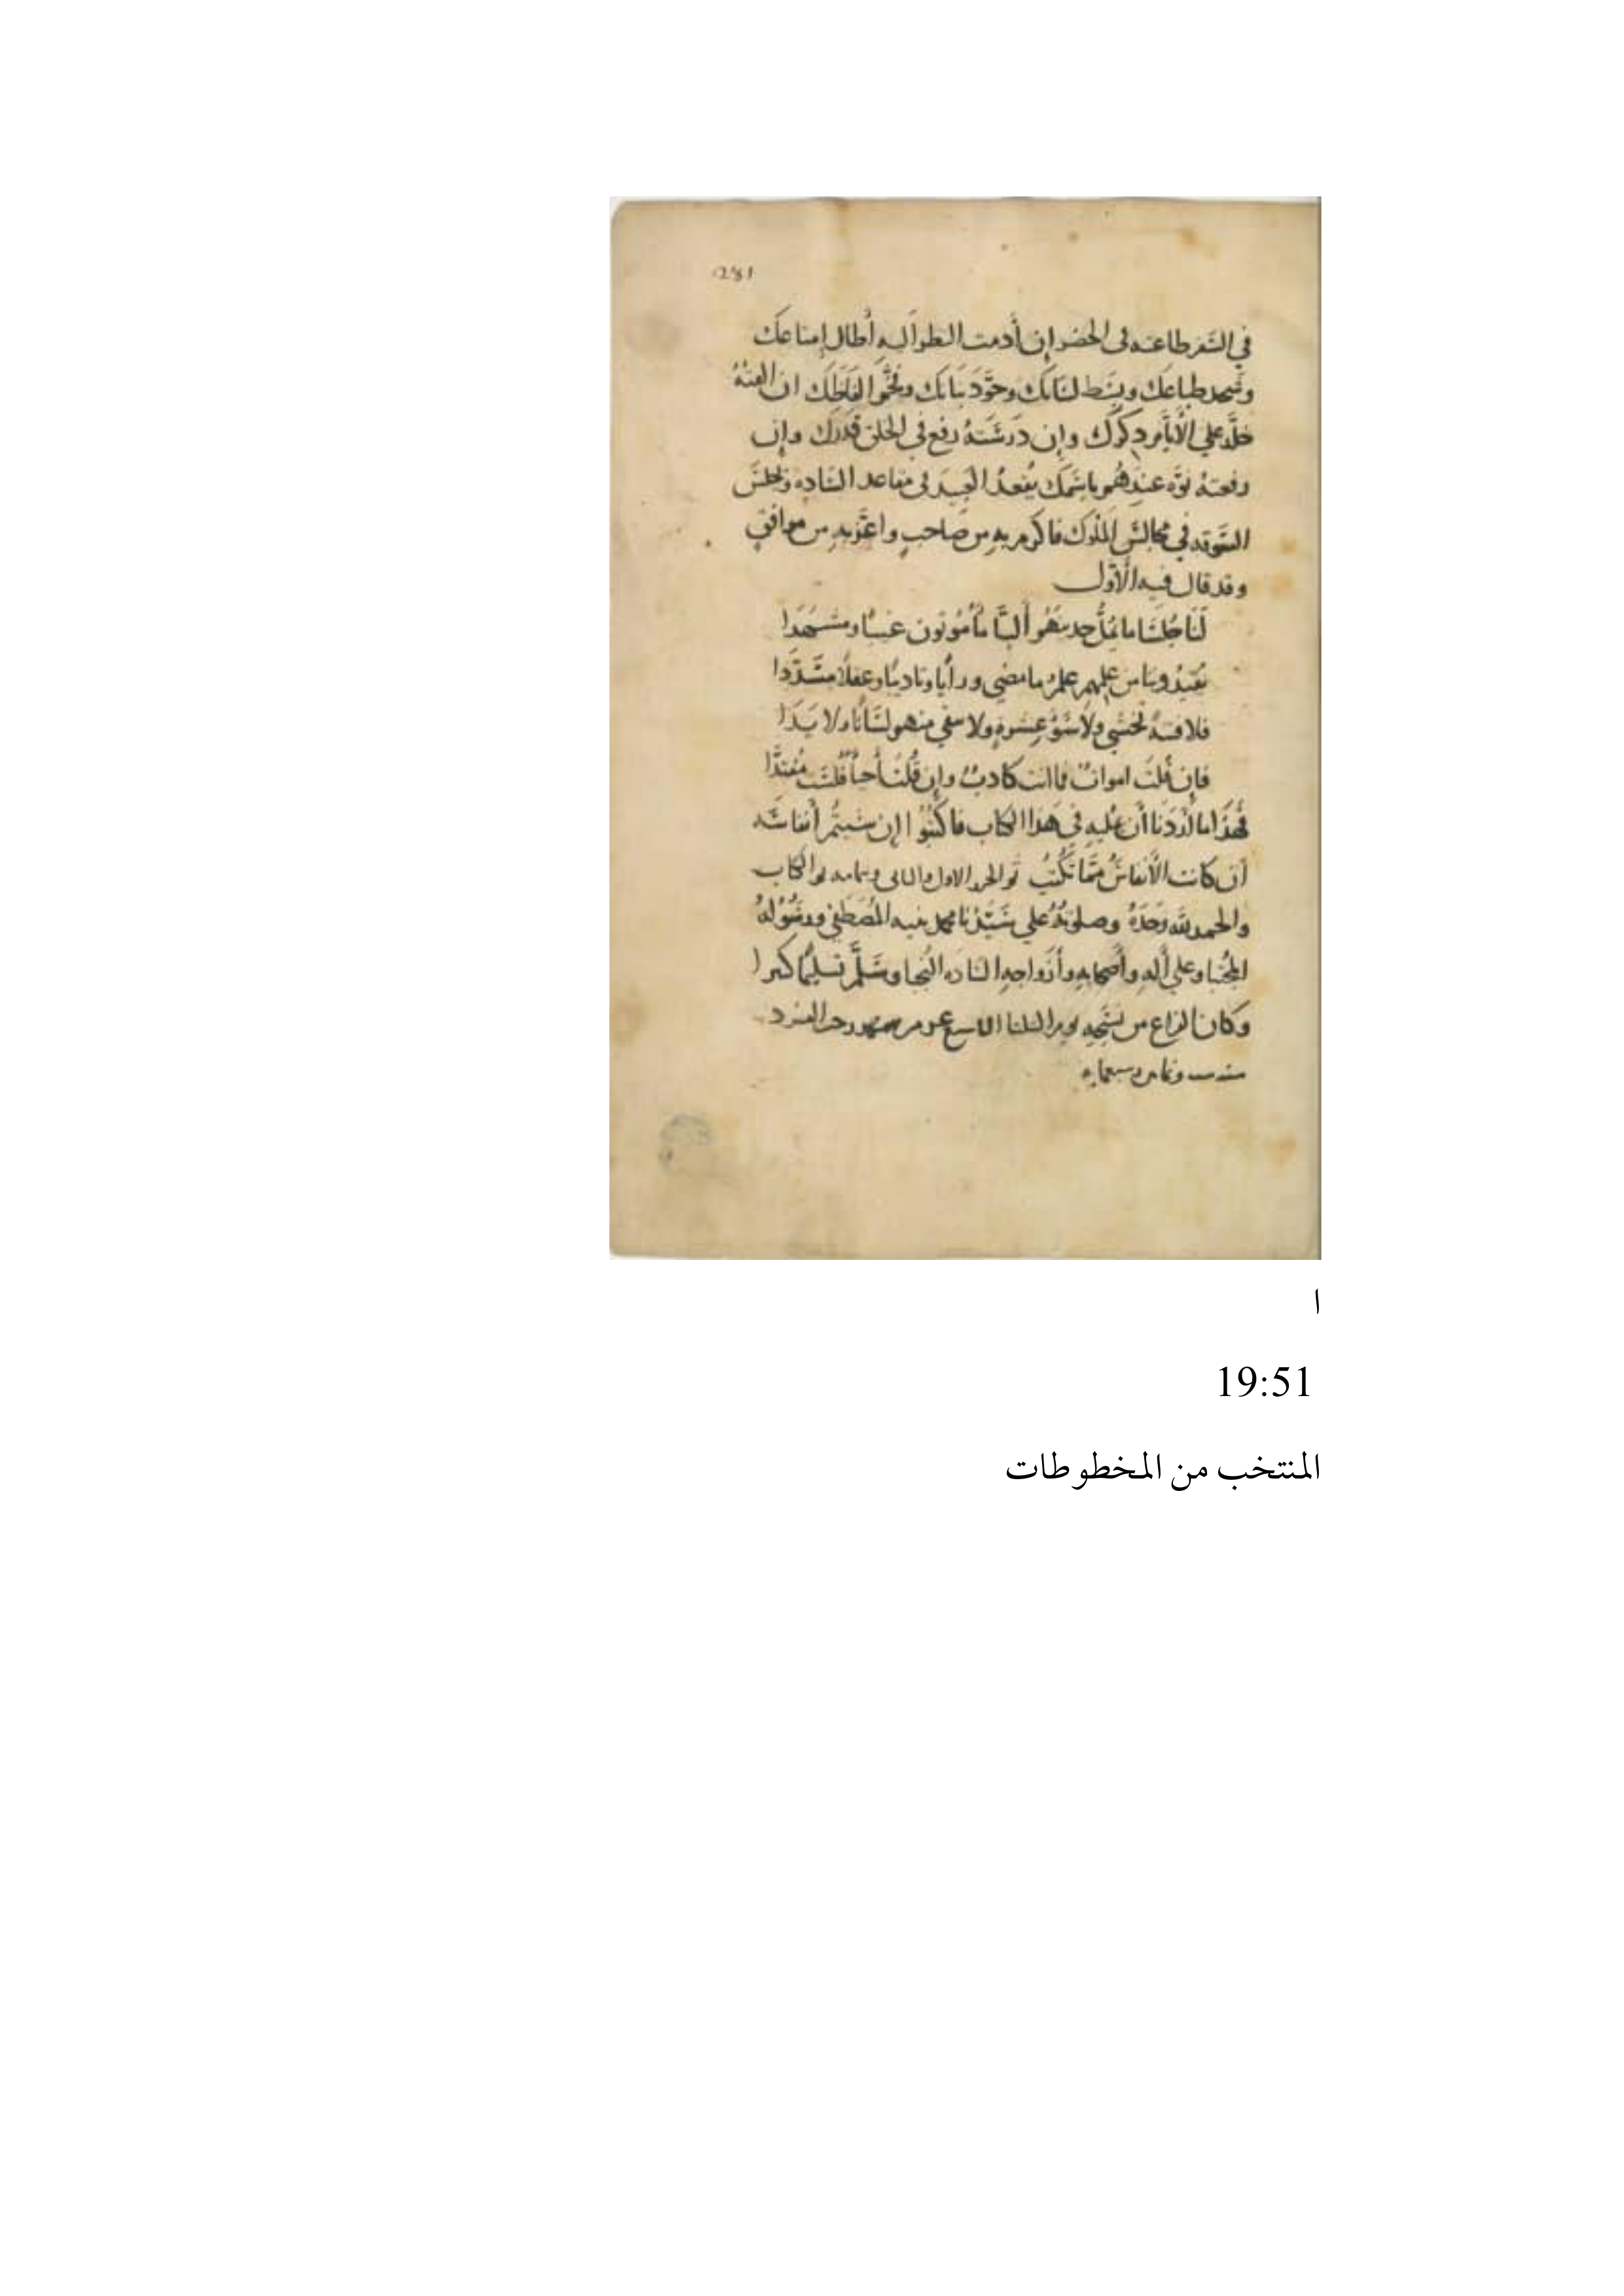 281
في السَّفر طاعته في الحضر إن أدمت النظر اليه أطال إمتاعك
وشحد طباعك وبسَط لسَانك وجوَّدَ بيَانك وفخَّم الفَاظك ان الفتهُ
خلَّد علي الأيَّام ذكرك وإن دَرسَتهُ رفع في الخلق قدرك وإن
رفعته نوّه عندهُم باسمك يُقعدُ العَبيد في مقاعد السَّاده ويُجلسُ
السّوقه في مجالس الملُوك فاكرم به من صَاحبٍ واعزز به من موافقٍ
وقد قال فيه الأوَّل
لَنَا جُلسَا ما نملُّ حديثَهُم ألبَّا مأمُونون غيبًا ومشهَدَا
يُفيدُوننا من علمهم علم ما مضي ورأيًا وتاديبًا وعقلًا مسَدَّدا
فلا فتنةً تخشي ولا سُوَ عشرةٍ ولا نتقي منهم لسَانًا ولا يَدَا
فإن قُلتَ اموات فما انت كاذبٌ وإن قُلتَ أحياٌ فلسَت مُفندَّا
فهَذَا ما أردنا أن نمليه في هَذا الكتاب فاكتبُوا إن شيتم أنفاسَه
أن كانت الأنفاسُ ممَّا تُكتبُ تم الجز الاول والثاني وبتمامه تم الكتاب
والحمد لله وَحدَهُ وصلوتهُ علي سَيّدنَا محمد نبيه المُصطَفي ورسُولهُ
المجتبا وعلي أله وأصحابه وأزواجه السَّادَه النُجبا وسَلَّم تسليمًا كثيرا
وكان الفراغ من نسخه يوم الثلثا التاسع عشر من شهر رجب الفرد
سنه ست وثمانين وسبعمايه
ا
19:51
المنتخب من المخطوطات